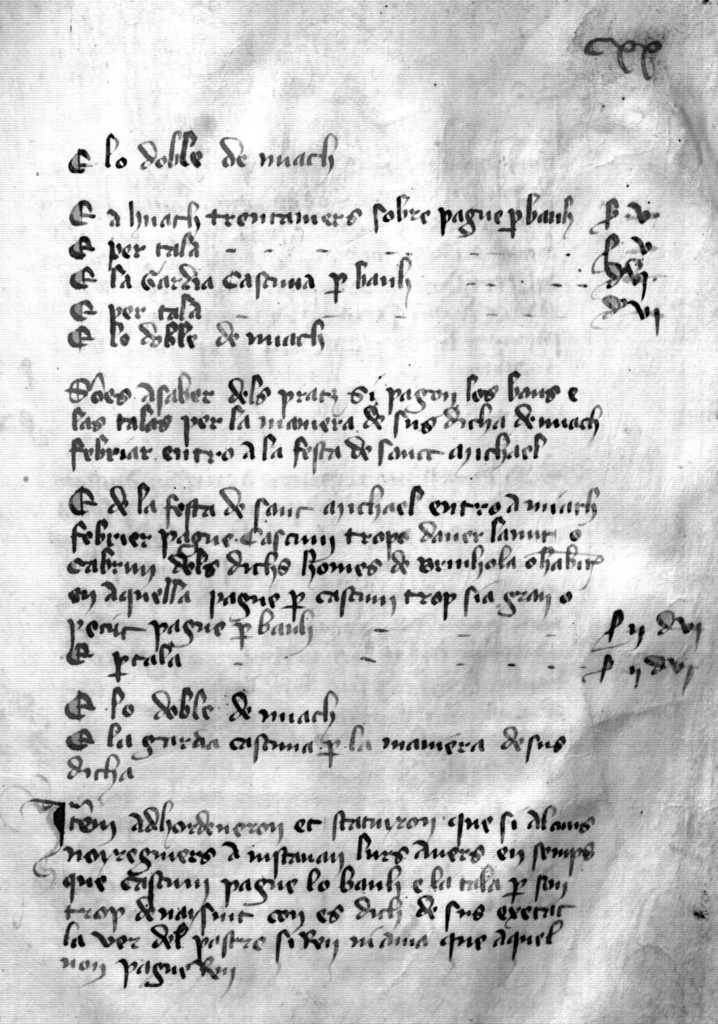 cxx
E lo doble de nuach
E a huach trentaniers sobre pague per banh s v
E per tala s v
E la Gardia Cascuna per banh d vi
E per tala d vi
E lo doble de nuach
So es asaber dels pratz si pagon los bans e
las talas per la maniera de sus dicha de miach
febriar entro a la festa de sanct michael
E de la festa de sant michael entro a miach
febrier pague Cascun trop daver lanut o
Cabrun dels dichs homes de Brinhola o habit
en aquella pague per cascun trop sia gran o
pecit pague per banh s ii d vi
E per tala s ii d vi
E lo doble de nuach
E la gardia cascuna per la maniera de sus
dicha
Item adhordeneron et statuyron que si alcuns
noyreguiers a iustavan lurs avers en semps
que Cascun pague lo banh e la tala per son
trop de naysint con es dich de sus exetat
la ver del pastre si Ren niavia que aquel
non pague Ren